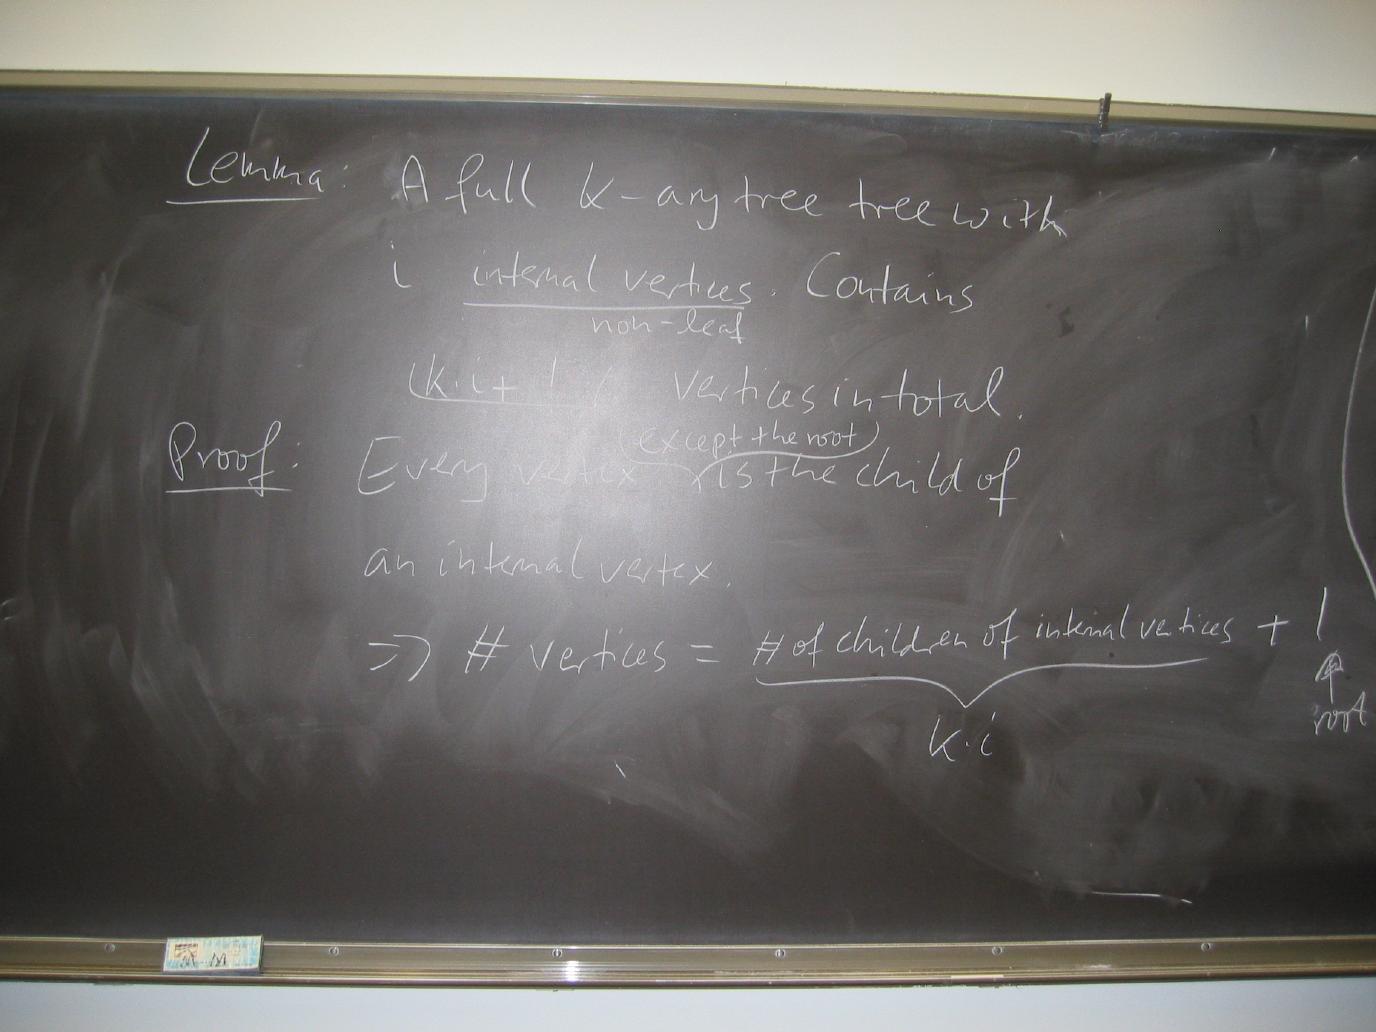 Lemma: A full k-ary tree tree with
i internal vertices. Contains
non-leaf
k·i+1 vertices in total.
(except the root)
Proof: Every vertex is the child of
an internal vertex.
=> # vertices = # of children of internal vertices + 1
k·i
root